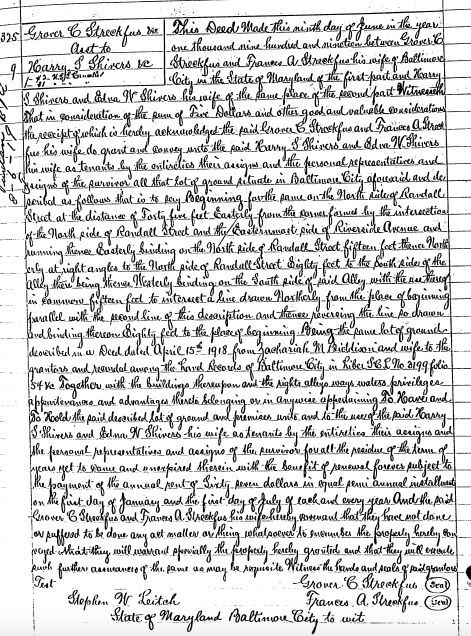 325
Grover C Streckfus &c
Asst to
Harry S Shivers &c
9
This Deed Made this ninth day of June in the year
one thousand nine hundred and nineteen between Grover C
Streckfus and Frances A Streckfus his wife of Baltimore
City in the State of Maryland of the first part and Harry
S Shivers and Edna W Shivers his wife of the same place of the second part Witnesseth
that in consideration of the sum of Five Dollars and other good and valuable considerations
the receipt of which is hereby acknowledged the said Grover C Streckfus and Frances A Streck
fus his wife do grant and convey unto the said Harry S Shivers and Edna W Shivers
his wife as tenants by the entireties their assigns and the personal representatives and
assigns of the survivor all that lot of ground situate in Baltimore City aforesaid and de
scribed as follows that is to say Beginning for the same on the North side of Randall
Street at the distance of Forty five feet Easterly from the corner formed by the intersection
of the North side of Randall Street and the Easternmost side of Riverside Avenue and
running thence Easterly binding on the North side of Randall Street fifteen feet thence North
erly at right angles to the North side of Randall Street Eighty feet to the South side of the
Alley there being thence Westerly binding on the South side of said Alley with the use thereof
in common fifteen feet to intersect a line drawn Northerly from the place of beginning
parallel with the second line of this description and thence reversing the line so drawn
and binding thereon Eighty feet to the place of beginning Being the same lot of ground
described in a Deed dated April 15th 1918 from Zachariah M and wife to the
grantors and recorded among the Land Records of Baltimore City in Liber S C L No 3199 folio
54 &c Together with the buildings thereupon and the rights alleys ways waters privileges
appurtenances and advantages thereto belonging or in anywise appertaining To Have and
To Hold the said described lot of ground and premises unto and to the use of the said Harry
S Shivers and Edna W Shivers his wife as tenants by the entireties their assigns and
the personal representatives and assigns of the survivor for all the residue of the term of
years yet to come and unexpired therein with the benefit of renewal forever subject to
the payment of the annual rent of Sixty seven dollars in equal semi annual installments
on the first day of January and the first day of July of each and every year And the said
Grover C Streckfus and Frances A Streckfus his wife hereby covenant that they have not done
or suffered to be done any act matter or thing whatsoever to encumber the property hereby con
veyed that they will warrant specially the property hereby granted and that they will execute
such further assurances of the same as may be requisite Witness the hands and seals of said grantors
Test Grover C Streckfus (Seal)
Stephen W Leitch Frances A Streckfus (Seal)
State of Maryland Baltimore City to wit